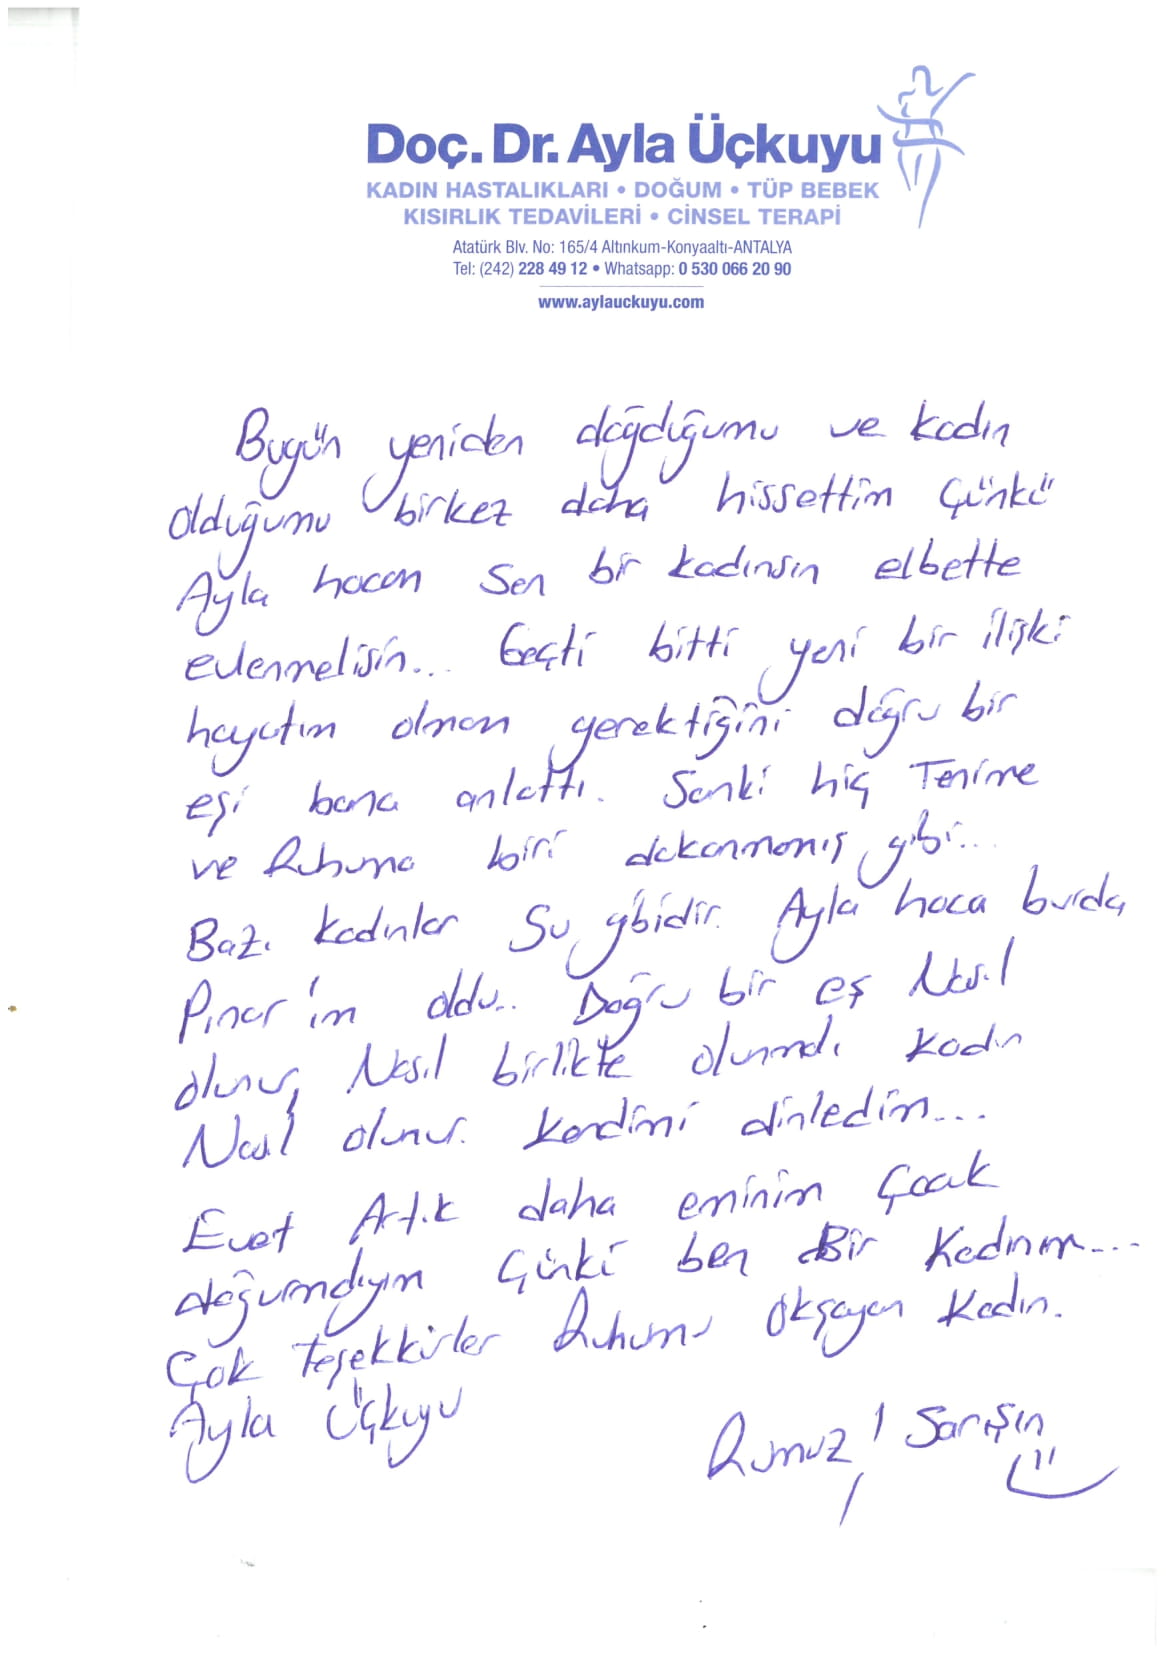 Doç. Dr. Ayla Üçkuyu
KADIN HASTALIKLARI • DOĞUM • TÜP BEBEK
KISIRLIK TEDAVİLERİ • CİNSEL TERAPİ
Atatürk Blv. No: 165/4 Altınkum-Konyaaltı-ANTALYA
Tel: (242) 228 49 12 • Whatsapp: 0 530 066 20 90
www.aylauckuyu.com
Bugün yeniden doğduğumu ve kadın
olduğumu birkez daha hissettim Çünkü
Ayla hocam Sen bir kadınsın elbette
evlenmelisin... Geçti bitti yeni bir ilişki
hayatım olması gerektiğini doğru bir
eşi bana anlattı. Sanki hiç Tenime
ve Ruhuma biri dokanmamış gibi...
Bazı kadınlar Su gibidir. Ayla hoca burda
Pınar'ım oldu.. Doğru bir eş Nasıl
olunur, Nasıl birlikte olunmalı kadın
Nasıl olunur. Kendimi dinledim...
Evet Artık daha eminim Çocuk
doğurmalıyım Çünki ben Bir Kadınım...
Çok Teşekkürler Ruhumu Okşayan Kadın.
Ayla Üçkuyu
Rumuz! Sarışın